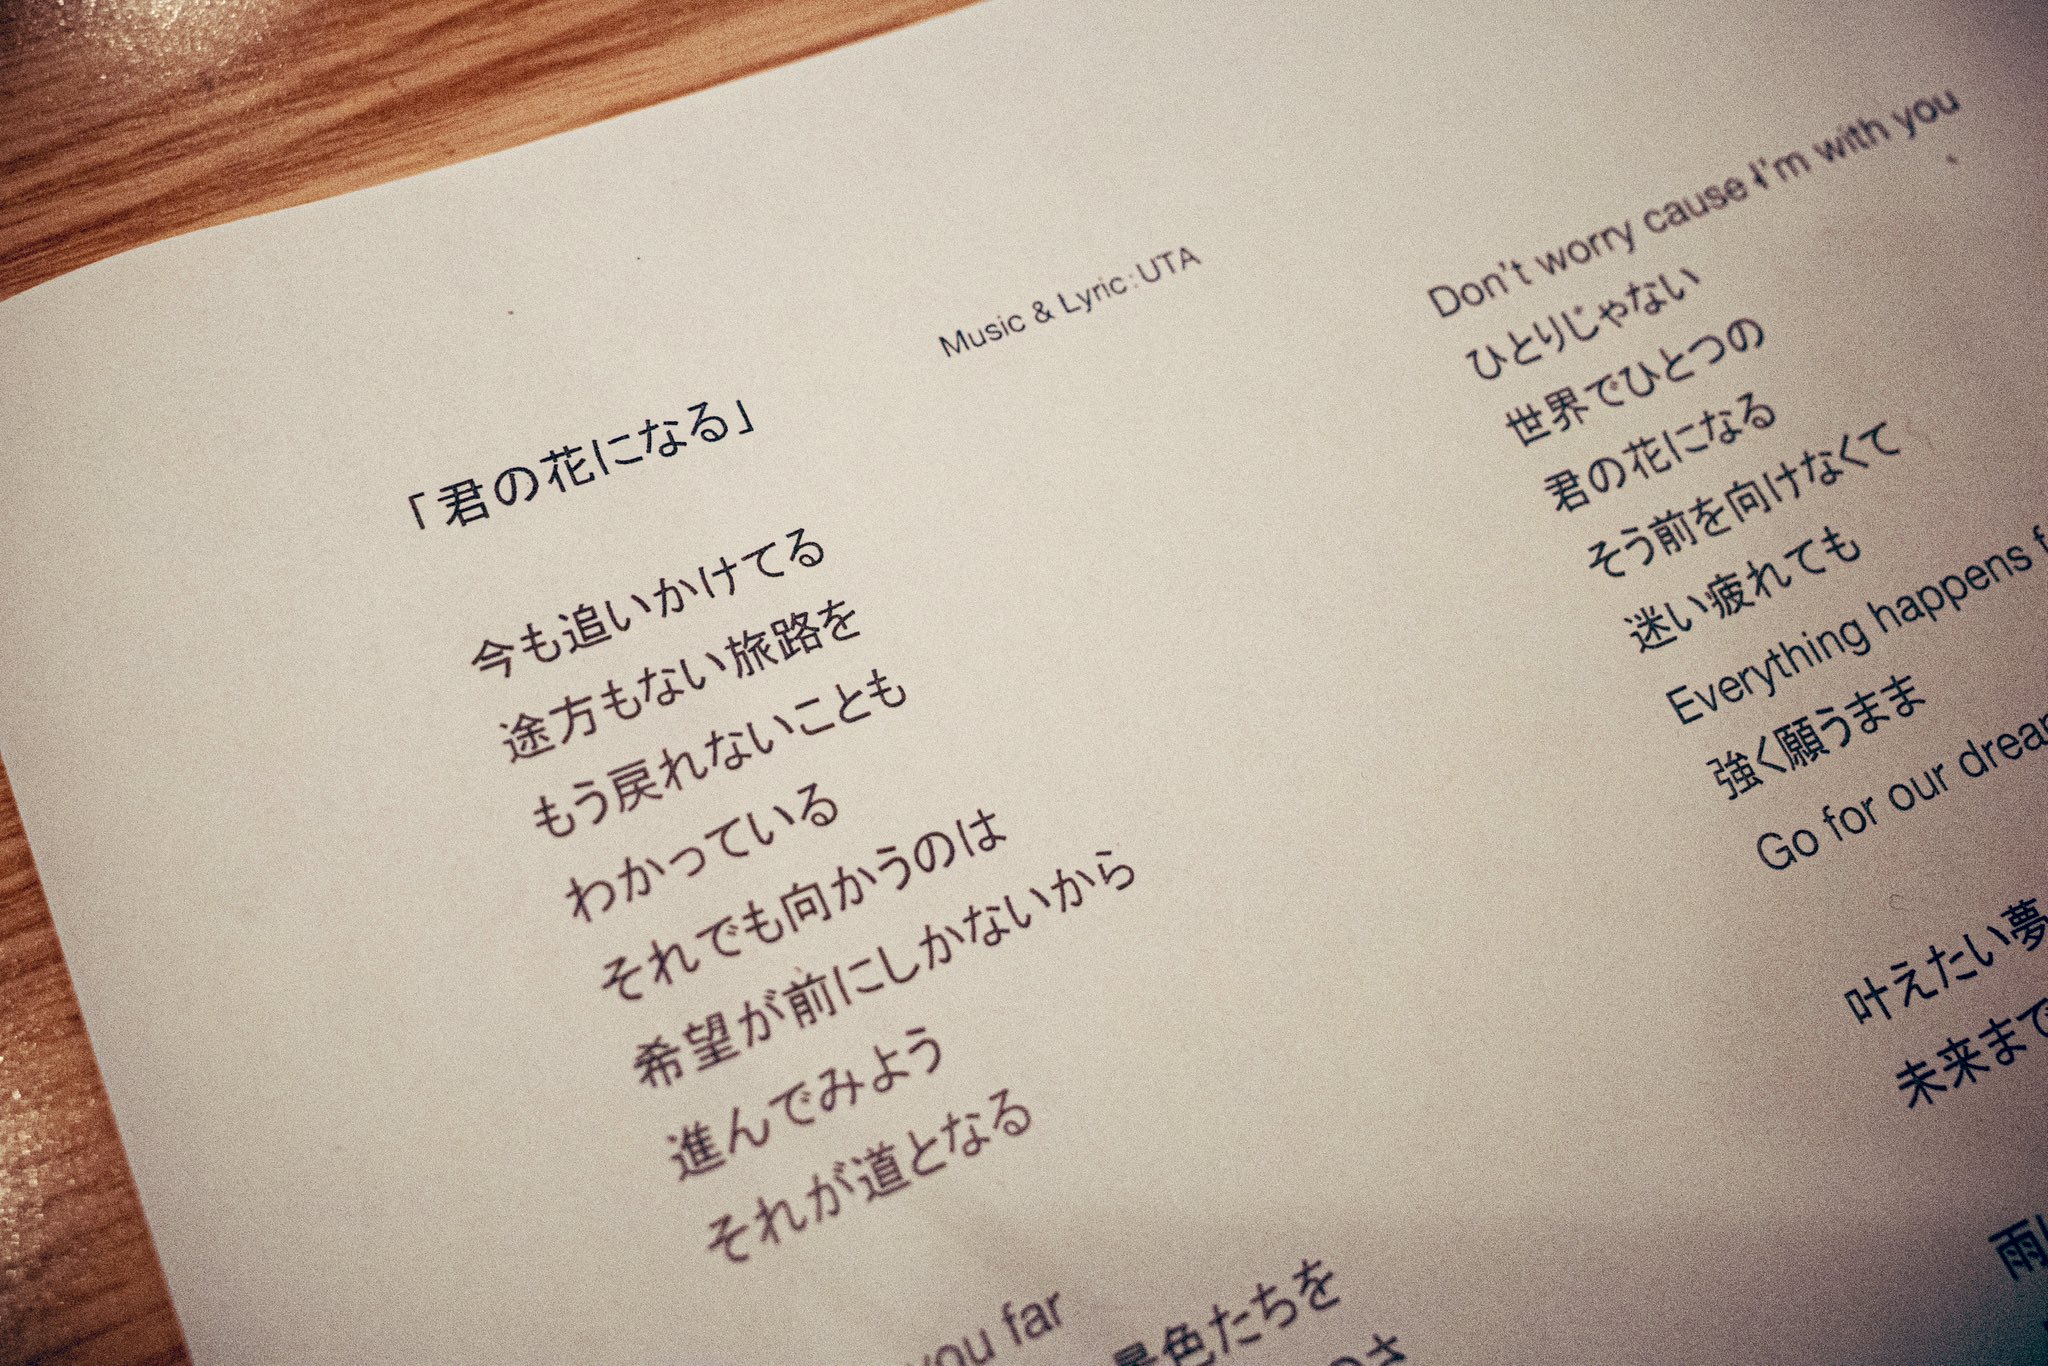 「君の花になる」
Music & Lyric：UTA
今も追いかけてる
途方もない旅路を
もう戻れないことも
わかっている
それでも向かうのは
希望が前にしかないから
進んでみよう
それが道となる
you far
景色たちを
のさ
Don't worry cause I'm with you
ひとりじゃない
世界でひとつの
君の花になる
そう前を向けなくて
迷い疲れても
Everything happens f
強く願うまま
Go for our drea
叶えたい夢
未来まで
雨